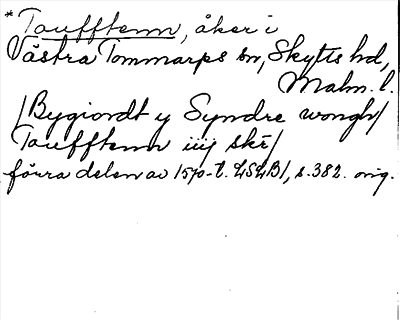 * Taufftenn, åker i
Västra Tommarps sn, Skytts hd,
Malm. l.
/Bygiordt y Syndre wongh/
Taufftenn iiij ske/
förra delen av 1570-t. LSLB/, s. 382. orig.